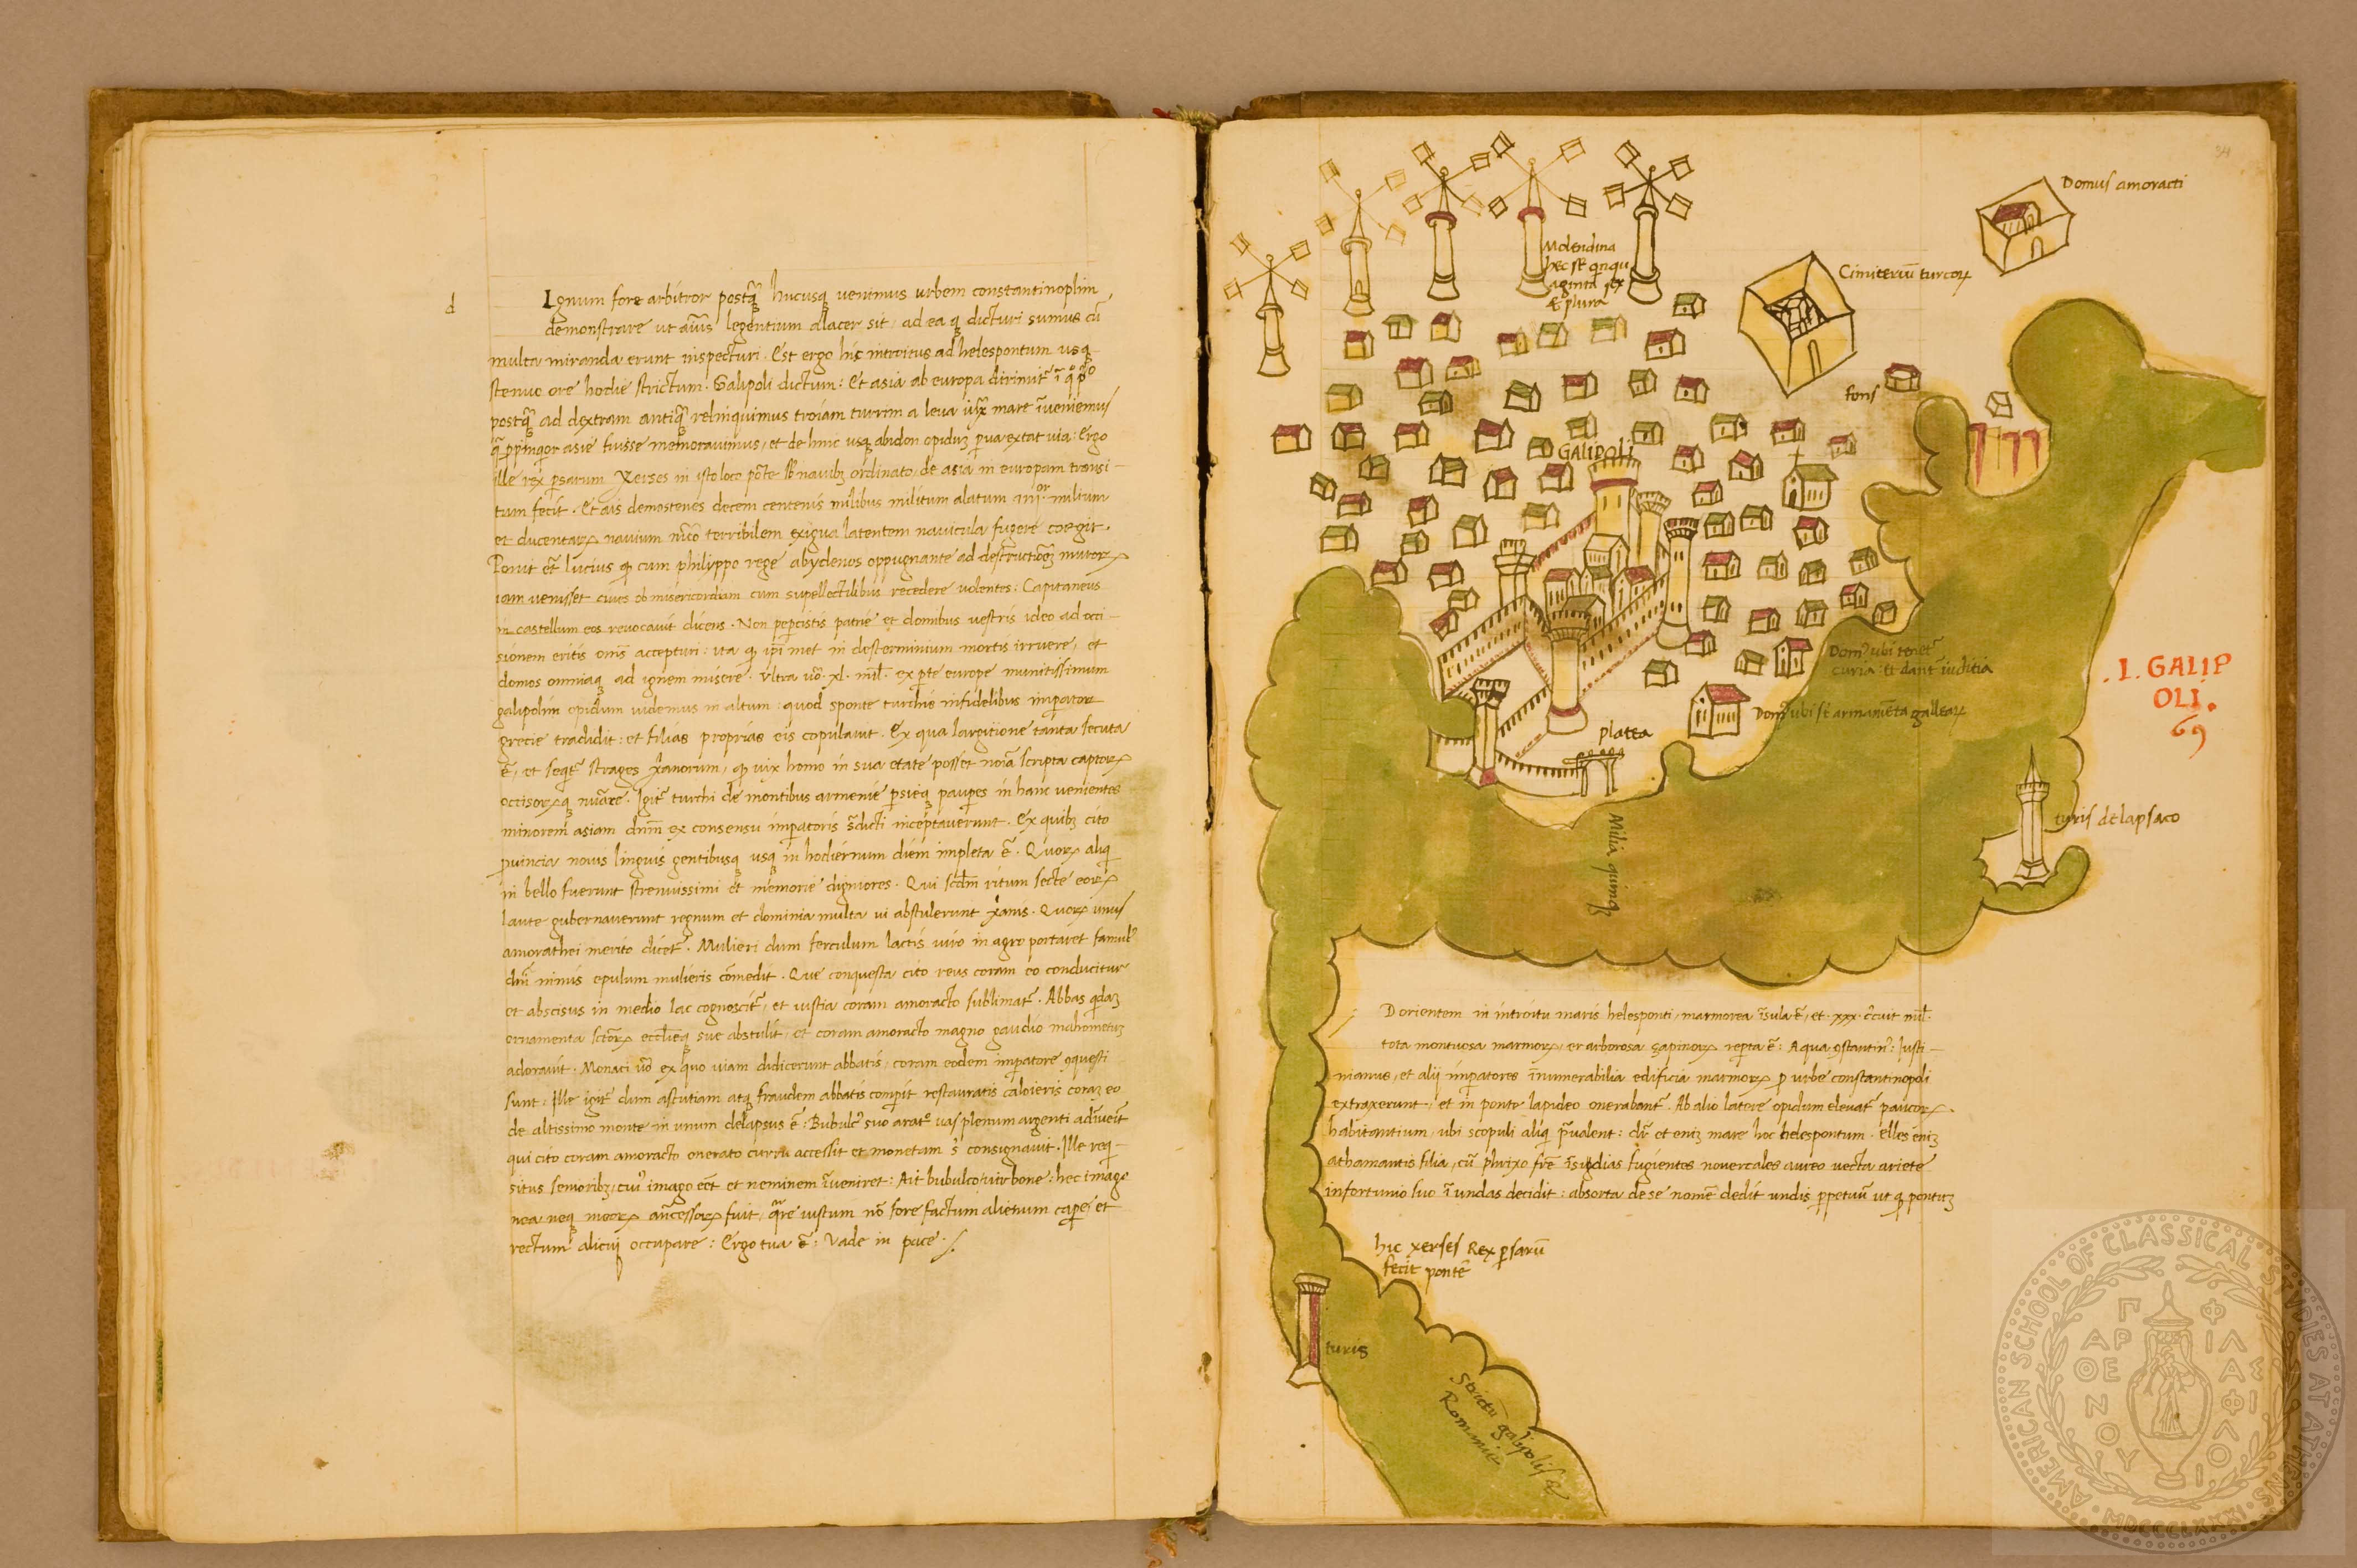 d
Ignum fore arbitror postq̃ hucusq; venimus urbem constantinoplim
demonstrare ut aĩus legentium allacer sit, ad ea q; dicturi sumus cũ
multa miranda erunt inspecturi. Est ergo hic introitus ad helespontum usq;
stenuo ore hodie strictum. Galipoli dictum: Et asia ab europa dirimit̃
postq̃ ad dextram antiq̃ relinquimus troiam turrim a leva mare ĩveniemus
asie fuisse memoravimus, et de hinc usq; abidon opiduʒ pua extat via: Ergo
ille rex psarum Xerses in isto loco põte navibʒ ordinato, de asia in europam transi-
tum fecit. Et ais demostenes decem centenis milibus militum alatum iiiiᵒʳ milium
et ducentaꝝ navium terribilem exigua latentem navicula fugere coegit.
Ponit et̃ lucius cum philippo rege abydenos oppugnante ad destructiõeʒ muroꝝ
iam venisset cives ob misericordiam cum supellectilibus recedere volentes: Capitaneus
in castellum eos revocavit dicens. Non pepcistis patrie et domibus vestris ideo ad occi-
sionem eritis oms̃ accepturi: ita ip̃i met in desterminium mortis irruere, et
domos omniaq; ad ignem misere. Ultra v̊o. xl. mil̃. ex pte europe munitissimum
galipolim opidum videmus in altum: quod sponte turchis infidelibus impator
grecie tradidit: et filias proprias eis copulavit. Ex qua largitione tanta secuta
ẽ, et seqt̃ strages x̃anorum, vix homo in sua etate posset noĩa scripta captoꝝ
occisoꝝq; nũare. Igit̃ turchi de montibus armenie psieq; paupes in hanc venientes
minorem asiam dnm̃ ex consensu impatoris s̃dicti inceptaverunt. Ex quibʒ cito
pvincia novis linguis gentibusq; usq; in hodiernum diem impleta ẽ. Quoꝝ aliq
in bello fuerunt strenuissimi et memorie digniores. Qui scdm̃ ritum secte eoꝝ
laute gubernaverunt regnum et dominia multa vi abstulerunt x̃anis. Quoꝝ unus
amorathei merito dicet̃. Mulieri dum ferculum lactis viro in agro portaret famul᾽
dnĩ minis epulum mulieris cõmedit. Que conquesta cito reus coram eo conducitur
et abscisus in medio lac cognoscit̃, et iustia coram amoracto sublimat̃. Abbas qdaʒ
ornamenta sctõꝝ eccl̃ieq; sue abstulit, et coram amoracto magno gaudio mahometuʒ
adoravit. Monaci v̊o ex quo viam didicerunt abbatis, coram eodem impatore ꝯquesti
sunt: Ille igit̃ dum astutiam atq; fraudem abbatis compit restauratis caloieris coraʒ eo
de altissimo monte in unum delapsus ẽ: Bubulc᾽ suo arat᷑ vas plenum argenti adĩveit
qui cito coram amoracto onerato curru accessit et monetam s᾽ consignavit. Ille req-
situs senioribʒ, cui᾽ imago eẽt et neminem ĩveniret: Ait bubulco, vir bone: hec imago
nea neq; meoꝝ ancessoꝝ fuit, q̃re iustum nõ fore factum alienum cape, et
rectum alicui occupare: Ergo tua ẽ: Vade in pace.
94
Domus amoracti
Cimiteriũ turcoꝝ
Molendina
hec st̃ qnqu
aginta ex
& plura
fons
GALIPOLI
Dom᾽ ubi tenet̃
curia: et dant̃ iuditia
Dom᾽ ubi st̃ armamẽta galleaꝝ
platea
Milia quinq;
.I. GALIP
OLI.
69
turis de lapsaco
D orientem in introitu maris helesponti, marmorea ĩsula ẽ, et. xxx. c̃cuit mil̃.
tota montuosa marmoꝝ, et arborosa sapinoꝝ repta ẽ: A qua ꝯstantin᾽: Justi-
nianus, et alii impatores ĩnumerabilia edificia marmoꝝ p urbe constantinopoli
extraxerunt, et in ponte lapideo onerabant̃. Ab alio latere opidum elevat̃ paucoꝝ
habitantium, ubi scopuli aliq p̃valent: dr̃ et eniʒ mare hoc helespontum. Elles eniʒ
athamantis filia, cũ phrixo fr̃e ĩsidias fugientes novercales aureo vecta ariete
infortunio suo ĩ undas decidit: absorta de se nomẽ dedit undis ppetuũ ut q pontuʒ
hic xerses Rex psarũ
fecit pontẽ
turis
Strictũ galipolis &
Romanie
AMERICAN SCHOOL OF CLASSICAL STVDIES AT ATHENS
MDCCCLXXXI
ΠΑΡΘΕΝΟΥ
ΦΙΛΑΣ ΦΙΛΟΙ